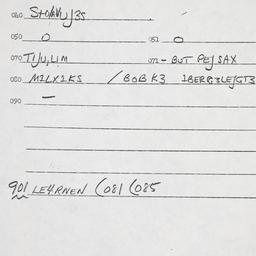 060
050 0 051 0
070 TI/U,LIM 071 - BUT PE/SAX
080 M2LX2KS / BOBK3 IBERR3LE/GT3
090 —
901 LE4RNEN (081 (085